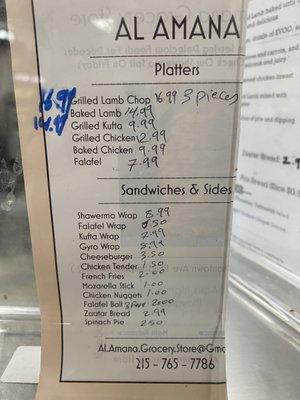 AL AMANA
Platters
16.99 Grilled Lamb Chop 16.99 3 pieces
14.99 Baked Lamb 14.99
Grilled Kufta 9.99
Grilled Chicken 2.99
Baked Chicken 9.99
Falafel 7.99
Sandwiches & Sides
Shawerma Wrap 8.99
Falafel Wrap 6.50
Kufta Wrap 7.99
Gyro Wrap 8.99
Cheeseburger 3.50
Chicken Tender 1.50
French Fries 2.00
Mozarella Stick 1.00
Chicken Nuggets 1.00
Falafel Ball
Zaatar Bread 2.99
Spinach Pie 2.50
Al.Amana.Grocery.Store@Gma
215 - 765 - 7786